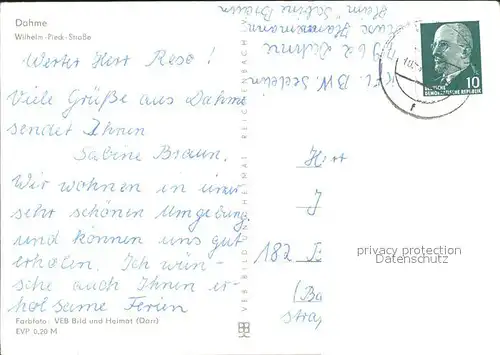 Dahme
Wilhelm-Pieck-Straße
Werter Herr Rese!
Viele Grüße aus Dahme
sendet Ihnen
Sabine Braun.
Wir wohnen in einer
sehr schönen Umgebung
und können uns gut
erholen. Ich wün-
sche auch Ihnen er-
holsame Ferien
Farbfoto: VEB Bild und Heimat (Darr)
EVP 0,20 M
VEB BILD UND HEIMAT REICHENBACH
Sabine Braun
DEUTSCHE
DEMOKRATISCHE REPUBLIK
10
Herr
J
182
(Ba
straß
privacy protection
Datenschutz